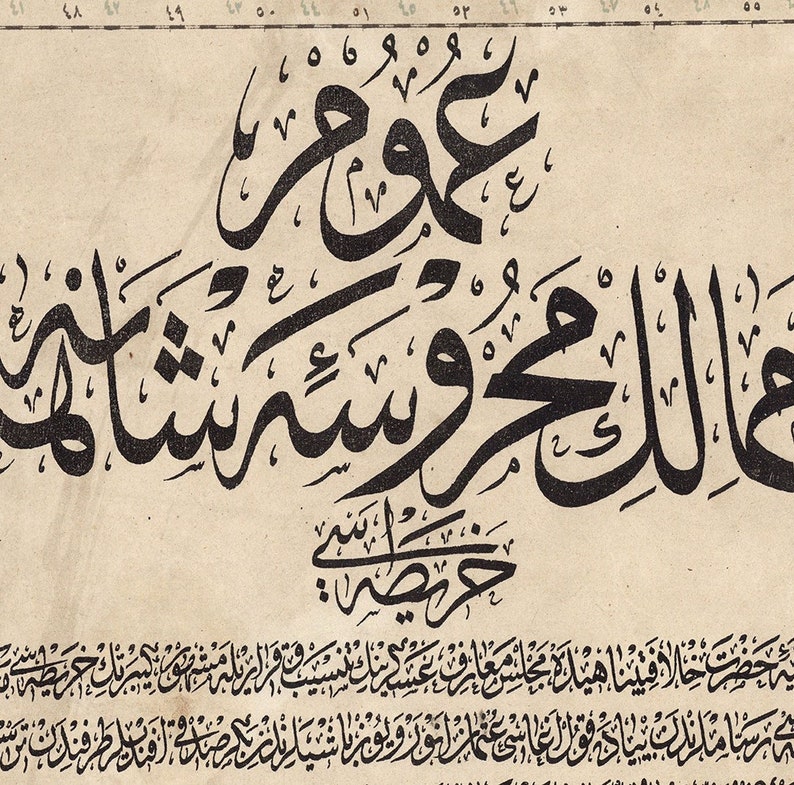 ٤١ ٤٢ ٤٨ ٤٣ ٤٩ ٥٠ ٤٤ ٥١ ٤٥ ٥٢ ٤٦ ٥٣ ٤٧ ٥٤ ٤٨ ٥٥
عموم
ممالك محروسهٔ شاهانه
خريطه سى
حضرت خلافتپناهيده مجلس معارف عسكرينك تنسيب و قراريله مشهور كيپرتك خريطه سى
رساملردن پياده قول اغاسى عثمان انور و يوزباشيلردن بكر صدقى افنديلر طرفندن